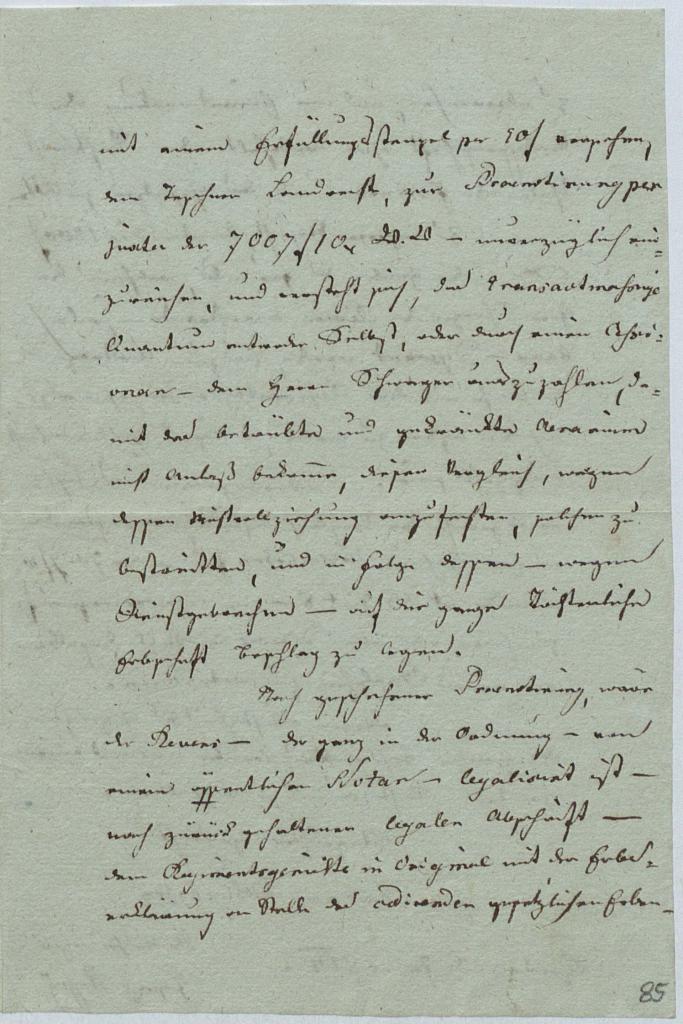 mit einem Erfüllungsstempel per 10 f versehen,
dem Teschner Landrecht, zur Praenotirung per
juxta der 7007 f 10 x W. W – unverzüglich ein-
zureichen, und versteht sich, das transactmäßige
Quantum entweder Selbst, oder durch einen
– dem Herrn Schwager auszuzahlen, da-
mit der betrübte und gekränkte
nicht Anlaß bekomme, diesen Vergleich, wegen
dessen Nichtvollziehung anzufechten, solchen zu
bestreitten, und in Folge dessen – wegen
– auf die ganze
Erbschaft Beschlag zu legen.
Nach geschehener Praenotirung, wäre
der Revers – der ganz in der Ordnung – von
einem öffentlichen Notar – legalisirt ist –
nach zurück gehaltener legalen Abschrift –
dem Regimentsgerichte in Original mit der Erbs-
erklärung an Stelle des gesetzlichen Erben
85